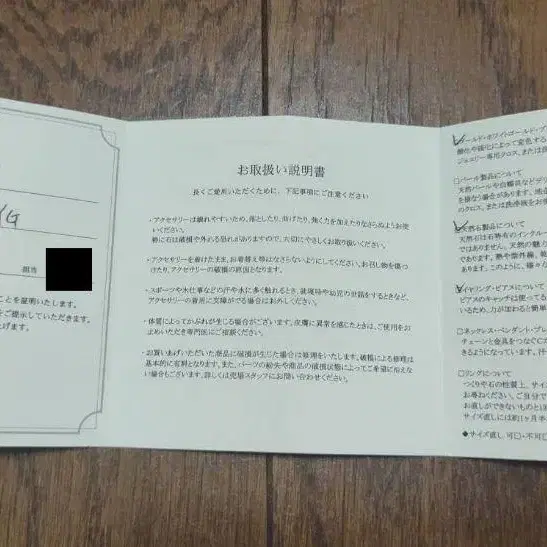 YG
担当
ことを証明いたします。
をご提示していただきます。
上げます。
お取扱い説明書
長くご愛用いただくために、下記事項にご注意ください
・アクセサリーは壊れやすいため、落としたり、曲げたり、強く力を加えたりなさらぬようお使
いください。
特に石は破損や外れる恐れがありますので、大切にやさしくお取り扱いください。
・アクセサリーを着けたまま、お着替え等はなさらないようにしてください。お召し物を傷つ
けたり、アクセサリーの破損の原因となります。
・スポーツや水仕事などの汗や水に多く触れるとき、就寝時や幼児の世話をするときなど、
アクセサリーの着用に支障がでる場合はお外しください。
・体質によってかぶれが生じる場合がございます。皮膚に異常を感じたときは、ご使用をお
止めいただき専門医にご相談ください。
・お買いあげいただいた商品に破損が生じた場合は修理をいたします。破損による修理は
基本的に有料となります。また、パーツの紛失や商品の破損状態によってご希望に沿えな
い場合もございます。詳しくは売場スタッフにお問い合わせください。
ールド・ホワイトゴールド・プ
酸化や硫化によって変色する
ジュエリー専用クロス、または
□パール製品について
天然パールや白蝶貝などデリ
を損なう場合があります。
のクロス、または洗浄液をお使
天然石製品について
天然石は石特有のインクルー
ではありません。天然の魅力
あります。熱や紫外線、
あります。このように、様々な
イヤリング・ピアスについて
ピアスのキャッチは使ってる
いため、力が加わると簡単
□ネックレス・ペンダント・ブレ
チェーンと金具をつなぐCカ
きるようになっています。
□リングについて
つくりや石の性質上、サイズ
お尋ねください。ご自分で
お直しができないものと
サイズ直しには約1ヶ月半
◆サイズ直し 可□・不可□